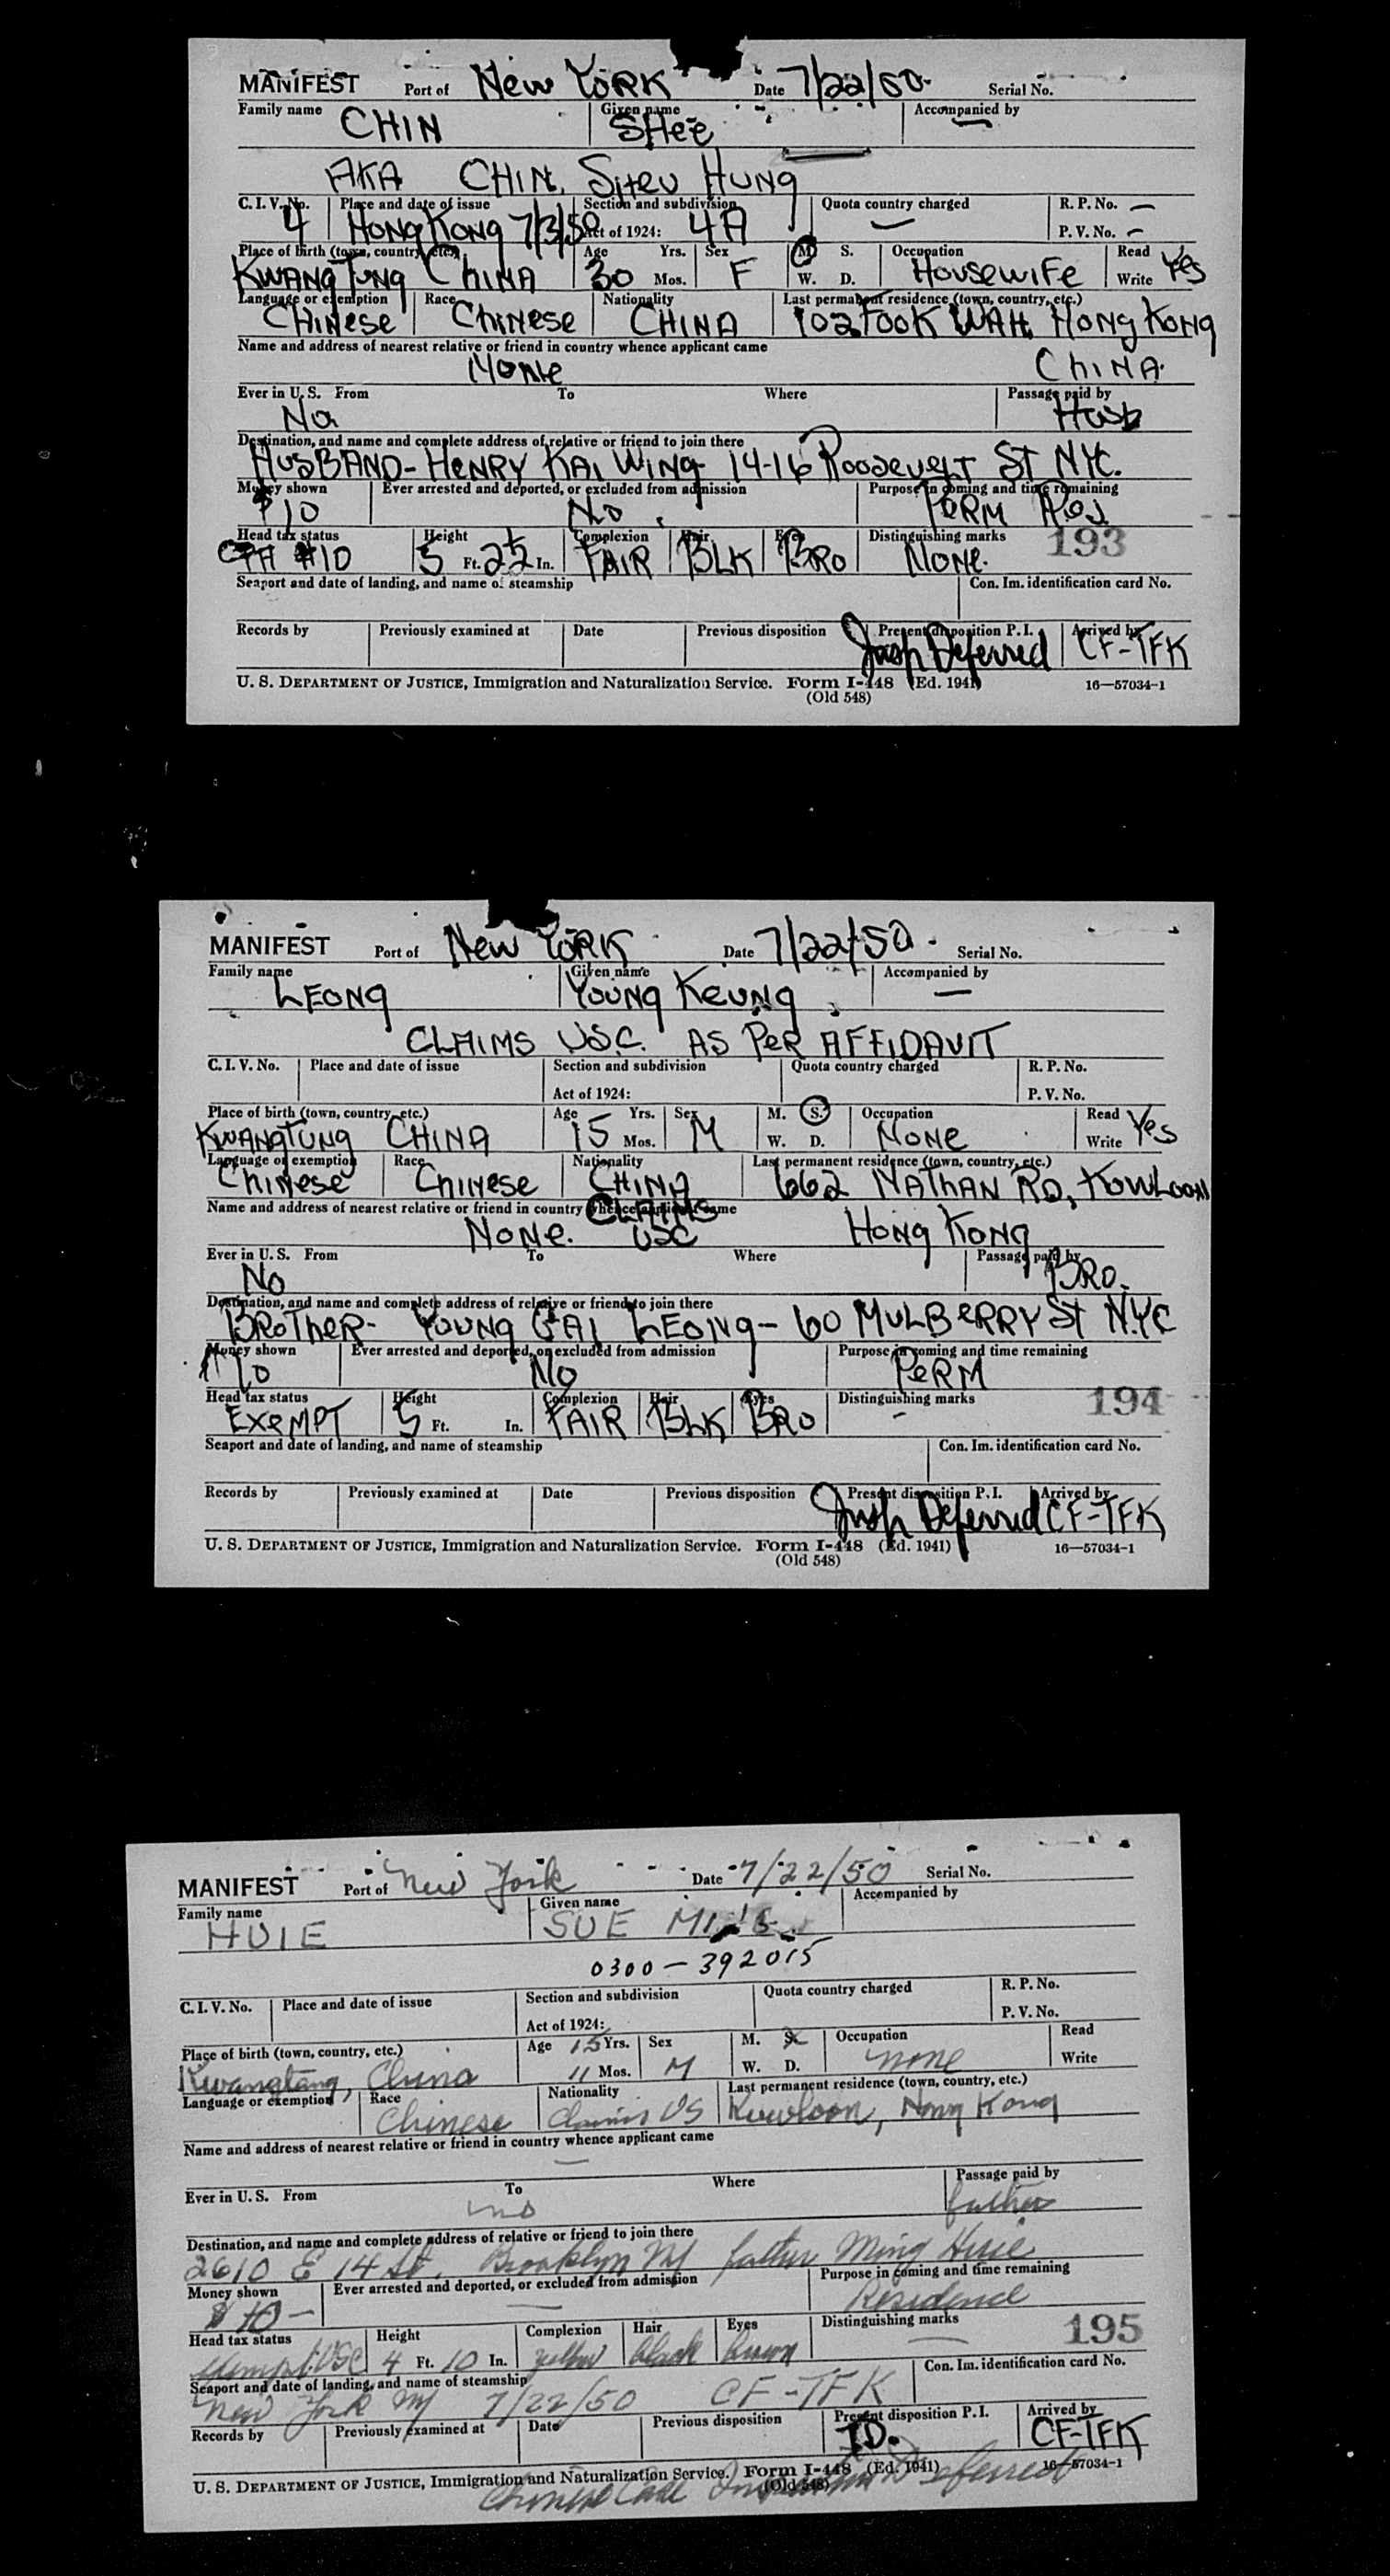 MANIFEST Port of New York Date 7/22/50. Serial No.
Family name CHIN Given name SHee Accompanied by —
AKA CHIN, SHeu HUNg
C. I. V. No. 4 Place and date of issue HONg Kong 7/3/50 Section and subdivision Act of 1924: 4A Quota country charged — R. P. No. —
P. V. No. —
Place of birth (town, country, etc.) KWANgTUNg CHINA Age 30 Yrs. Mos. Sex F M. S. W. D. Occupation HOUSeWIFe Read Write Yes
Language or exemption CHINese Race CHINese Nationality CHINA Last permanent residence (town, country, etc.) 102 FOOK WAH HONg KONg
Name and address of nearest relative or friend in country whence applicant came NONe CHINA.
Ever in U. S. From No To Where Passage paid by Husb
Destination, and name and complete address of relative or friend to join there
HUSBAND- HeNRY KAI WINg 14-16 RooseveLT ST NYC.
Money shown $10 Ever arrested and deported, or excluded from admission No. Purpose in coming and time remaining PeRM Res
Head tax status #10 Height 5 Ft. 2½ In. Complexion FAIR Hair BLK Eyes BRO Distinguishing marks NONe. 193
Seaport and date of landing, and name of steamship Con. Im. identification card No.
Records by Previously examined at Date Previous disposition Present disposition P. I. Deferred Arrived by CF-TFK
U. S. DEPARTMENT OF JUSTICE, Immigration and Naturalization Service. Form I-448 (Ed. 1941) 16—57034-1
(Old 548)
MANIFEST Port of New YORK Date 7/22/50. Serial No.
Family name LEONg Given name YOUNg KeUNg Accompanied by —
CLAIMS U.S.C. AS PeR AFFIDAVIT
C. I. V. No. Place and date of issue Section and subdivision Quota country charged R. P. No.
Act of 1924: P. V. No.
Place of birth (town, country, etc.) KWANgTUNg CHINA Age 15 Yrs. Mos. Sex M M. S. W. D. Occupation NONe Read Write Yes
Language or exemption CHINese Race CHINese Nationality CHINA CLAIMS USC Last permanent residence (town, country, etc.) 662 NATHAN RD, KOWLOON
Name and address of nearest relative or friend in country whence applicant came NONe. HONg KONg
Ever in U. S. From No To Where Passage paid by BRO.
Destination, and name and complete address of relative or friend to join there
BROTHeR- YOUNg GAI LEONg- 60 MULBeRRY ST N.Y.C
Money shown 10 Ever arrested and deported, or excluded from admission No Purpose in coming and time remaining PeRM
Head tax status EXeMPT Height 5 Ft. In. Complexion FAIR Hair BLK Eyes BRO Distinguishing marks - 194
Seaport and date of landing, and name of steamship Con. Im. identification card No.
Records by Previously examined at Date Previous disposition Present disposition P. I. Deferred Arrived by CF-TFK
U. S. DEPARTMENT OF JUSTICE, Immigration and Naturalization Service. Form I-448 (Ed. 1941) 16—57034-1
(Old 548)
MANIFEST Port of New York Date 7/22/50 Serial No.
Family name HUIE Given name SUE Accompanied by
0300-392015
C. I. V. No. Place and date of issue Section and subdivision Quota country charged R. P. No.
Act of 1924: P. V. No.
Place of birth (town, country, etc.) Kwangtung, China Age 15 Yrs. 11 Mos. Sex M M. S. W. D. Occupation none Read Write
Language or exemption Race Chinese Nationality Claims US Last permanent residence (town, country, etc.) Kowloon, Hong Kong
Name and address of nearest relative or friend in country whence applicant came —
Ever in U. S. From To no Where Passage paid by father
Destination, and name and complete address of relative or friend to join there
2610 E 14 St. Brooklyn NY father Ming Huie
Money shown $10 — Ever arrested and deported, or excluded from admission — Purpose in coming and time remaining Residence
Head tax status exempt USC Height 4 Ft. 10 In. Complexion yellow Hair black Eyes brown Distinguishing marks — 195
Seaport and date of landing, and name of steamship New York NY 7/22/50 CF-TFK Con. Im. identification card No.
Records by Previously examined at Date Previous disposition Present disposition P. I. I.D. Arrived by CF-TFK
U. S. DEPARTMENT OF JUSTICE, Immigration and Naturalization Service. Form I-448 (Ed. 1941) 16—57034-1
(Old 548)
Chinese Case Deferred